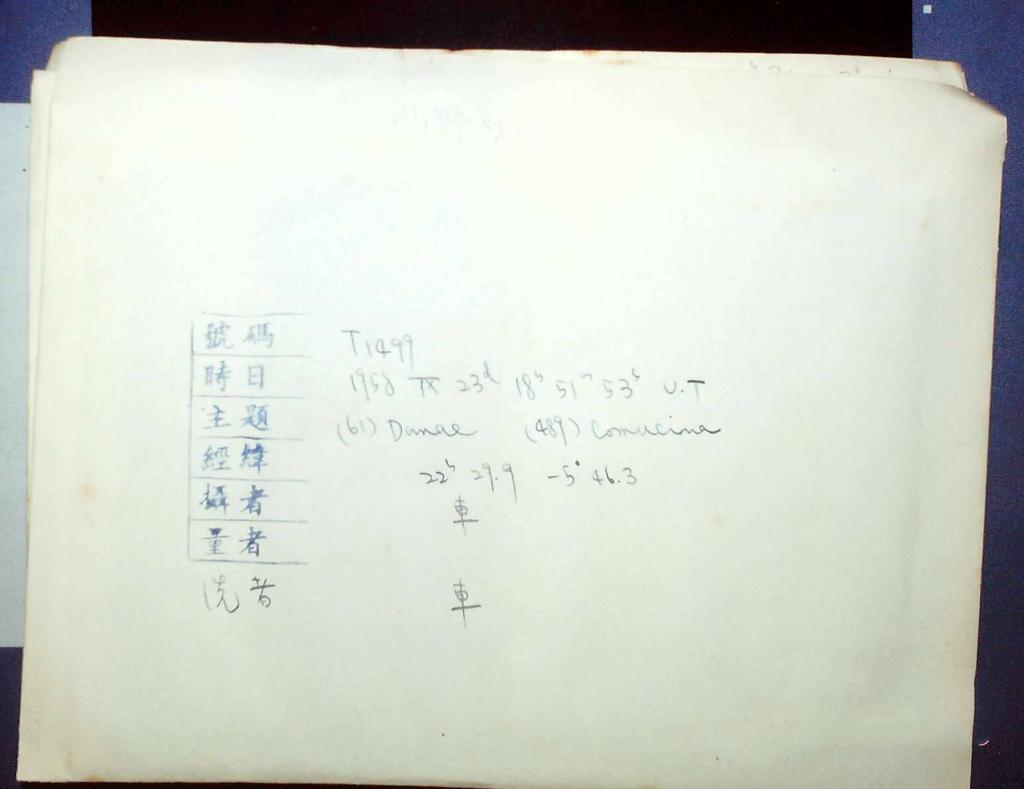 號碼 T1499
時日 1958 IX 23ᵈ 18ʰ 51ᵐ 53ˢ U.T
主題 (61) Danae (489) Comacina
經緯 22ʰ 29.9 -5° 46.3
攝者 車
量者
洗者 車